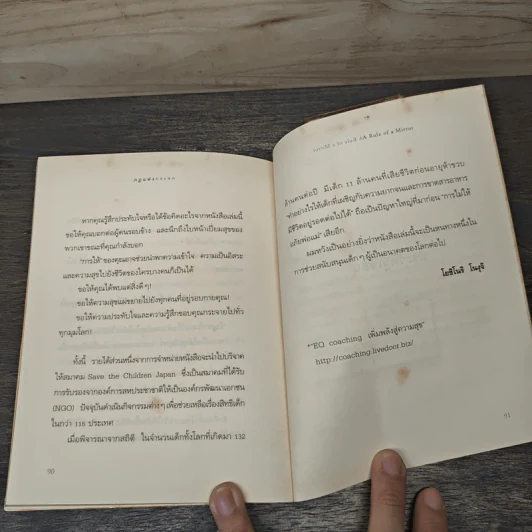 กฎแห่งกระจก
หากคุณรู้สึกประทับใจหรือได้ข้อคิดอะไรจากหนังสือเล่มนี้
ขอให้คุณบอกต่อผู้คนรอบข้าง และนึกถึงใบหน้าเปี่ยมสุขของ
พวกเขาขณะที่คุณกำลังบอก
"การให้" ของคุณอาจช่วยนำพาความเข้าใจ ความเป็นอิสระ
และความสุขไปยังชีวิตของใครบางคนก็เป็นได้
ขอให้คุณได้พบแต่สิ่งดีๆ!
ขอให้ความสุขแผ่ขยายไปยังทุกคนที่อยู่รอบกายคุณ!
ขอให้ความประทับใจและความรู้สึกขอบคุณกระจายไปทั่ว
ทุกมุมโลก!
ทั้งนี้ รายได้ส่วนหนึ่งจากการจำหน่ายหนังสือจะนำไปบริจาค
ให้สมาคม Save the Children Japan ซึ่งเป็นสมาคมที่ได้รับ
การรับรองจากองค์การสหประชาชาติให้เป็นองค์กรพัฒนาเอกชน
(NGO) ปัจจุบันดำเนินกิจกรรมต่างๆ เพื่อช่วยเหลือเรื่องสิทธิเด็ก
ในกว่า 115 ประเทศ
เมื่อพิจารณาจากสถิติ ในจำนวนเด็กทั้งโลกที่เกิดมา 132
90
A Rule of a Mirror
ล้านคนต่อปี มีเด็ก 11 ล้านคนที่เสียชีวิตก่อนอายุห้าขวบ
"ทำอย่างไรให้เด็กที่เผชิญกับความยากจนและการขาดสารอาหาร
มีชีวิตอยู่รอดต่อไปได้" ถือเป็นปัญหาใหญ่ที่มาก่อน "การไม่ให้
อภัยพ่อแม่" เสียอีก
ผมหวังเป็นอย่างยิ่งว่าหนังสือเล่มนี้จะเป็นหนทางหนึ่งใน
การช่วยสนับสนุนเด็กๆ ผู้เป็นอนาคตของโลกต่อไป
โยชิโนริ โนงุจิ
*"EQ coaching เพิ่มพลังสู่ความสุข"
http://coaching.livedoor.biz/
91